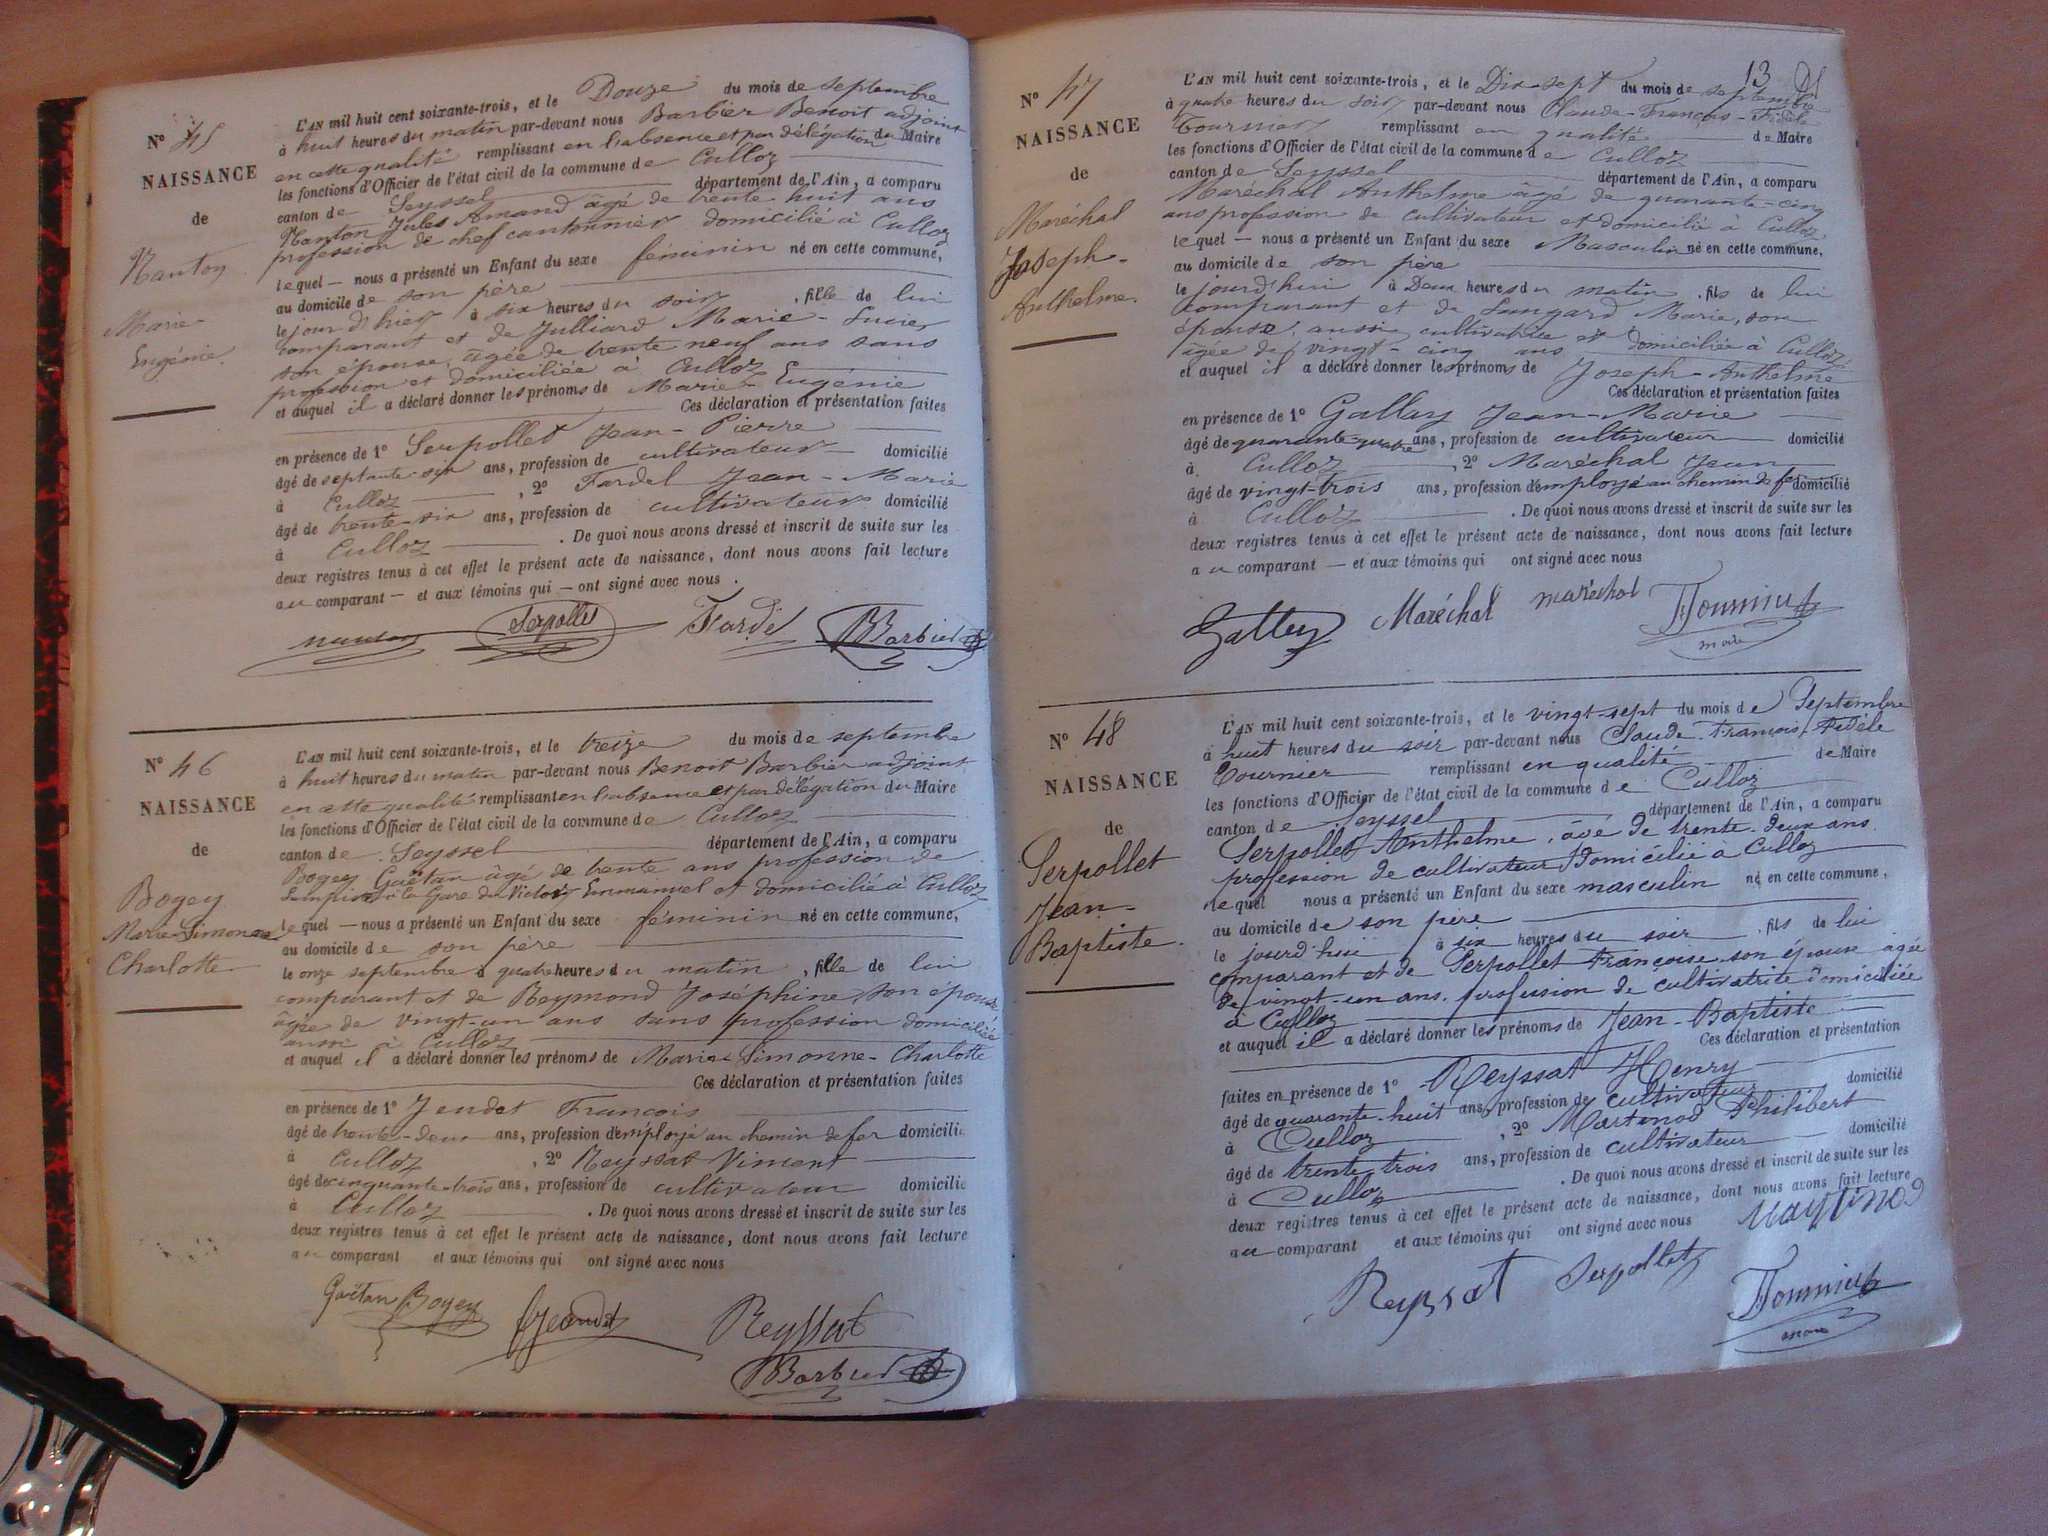 N° 45
NAISSANCE
de
Nanton
Marie
Eugénie
L'AN mil huit cent soixante-trois, et le Douze du mois de septembre
à huit heures du matin par-devant nous Barbier Benoit adjoint
en cette qualité remplissant en l'absence et par délégation du Maire
les fonctions d'Officier de l'état civil de la commune de Culloz
canton de Seyssel département de l'Ain, a comparu
Nanton Jules Amand âgé de trente huit ans
profession de chef cantonnier domicilié à Culloz
lequel — nous a présenté un Enfant du sexe féminin né en cette commune,
au domicile de son père
le jour d'hier à six heures du soir, fille de lui
comparant et de Julliard Marie-Lucie
son épouse, âgée de trente neuf ans sans
profession et domiciliée à Culloz
et auquel il a déclaré donner les prénoms de Marie-Eugénie
Ces déclaration et présentation faites
en présence de 1° Serpollet Jean-Pierre
âgé de septante-six ans, profession de cultivateur domicilié
à Culloz, 2° Tardel Jean-Marie
âgé de trente-six ans, profession de cultivateur domicilié
à Culloz. De quoi nous avons dressé et inscrit de suite sur les
deux registres tenus à cet effet le présent acte de naissance, dont nous avons fait lecture
au comparant — et aux témoins qui — ont signé avec nous.
Serpollet Tardel BBarbier
N° 46
NAISSANCE
de
Bogey
Marie Simonne
Charlotte
L'AN mil huit cent soixante-trois, et le treize du mois de septembre
à huit heures du matin par-devant nous Benoit Barbier adjoint
en cette qualité remplissant en l'absence et par délégation du Maire
les fonctions d'Officier de l'état civil de la commune de Culloz
canton de Seyssel département de l'Ain, a comparu
Bogey Gaëtan âgé de trente ans profession de
à la Gare de Victor Emmanuel et domicilié à Culloz
lequel — nous a présenté un Enfant du sexe féminin né en cette commune,
au domicile de son père
le onze septembre à quatre heures du matin, fille de lui
comparant et de Reymond Joséphine son épouse
âgée de vingt-un ans sans profession domiciliée
aussi à Culloz
et auquel il a déclaré donner les prénoms de Marie Simonne-Charlotte
Ces déclaration et présentation faites
en présence de 1° Jendet François
âgé de trente-deux ans, profession d'employé au chemin de fer domicilié
à Culloz, 2° Reyssat Vincent
âgé de cinquante-trois ans, profession de cultivateur domicilié
à Culloz. De quoi nous avons dressé et inscrit de suite sur les
deux registres tenus à cet effet le présent acte de naissance, dont nous avons fait lecture
au comparant et aux témoins qui ont signé avec nous
Gaëtan Bogey Jeandet Reyssat
BBarbier
13
N° 47
NAISSANCE
de
Maréchal
Joseph-
Anthelme
L'AN mil huit cent soixante-trois, et le Dix-sept du mois de septembre
à quatre heures du soir par-devant nous Claude-François-Fidèle
Tournier remplissant en qualité de Maire
les fonctions d'Officier de l'état civil de la commune de Culloz
canton de Seyssel département de l'Ain, a comparu
Maréchal Anthelme âgé de quarante-cinq
ans profession de cultivateur et domicilié à Culloz
lequel — nous a présenté un Enfant du sexe Masculin né en cette commune,
au domicile de son père
le jourd'hui à Deux heures du matin, fils de lui
comparant et de Marie, son
épouse, aussi cultivatrice et
âgée de vingt-cinq ans domiciliée à Culloz
et auquel il a déclaré donner les prénoms de Joseph-Anthelme
Ces déclaration et présentation faites
en présence de 1° Gallay Jean-Marie
âgé de quarante-quatre ans, profession de cultivateur domicilié
à Culloz, 2° Maréchal Jean
âgé de vingt-trois ans, profession d'employé au chemin de fer domicilié
à Culloz. De quoi nous avons dressé et inscrit de suite sur les
deux registres tenus à cet effet le présent acte de naissance, dont nous avons fait lecture
au comparant — et aux témoins qui ont signé avec nous
Galley Maréchal maréchal Tournier
maire
N° 48
NAISSANCE
de
Serpollet
Jean-
Baptiste
L'AN mil huit cent soixante-trois, et le vingt-sept du mois de Septembre
à huit heures du soir par-devant nous Claude François Fidèle
Tournier remplissant en qualité de Maire
les fonctions d'Officier de l'état civil de la commune de Culloz
canton de Seyssel département de l'Ain, a comparu
Serpollet Anthelme, âgé de trente-deux ans
profession de cultivateur domicilié à Culloz
lequel nous a présenté un Enfant du sexe masculin né en cette commune,
au domicile de son père
le jourd'hui à six heures du soir, fils de lui
comparant et de Serpollet Françoise son épouse âgée
de vingt-un ans. profession de cultivatrice domiciliée
à Culloz
et auquel il a déclaré donner les prénoms de Jean-Baptiste
Ces déclaration et présentation
faites en présence de 1° Reyssat Henry
âgé de quarante-huit ans, profession de cultivateur domicilié
à Culloz, 2° Martinod Philibert
âgé de trente-trois ans, profession de cultivateur domicilié
à Culloz. De quoi nous avons dressé et inscrit de suite sur les
deux registres tenus à cet effet le présent acte de naissance, dont nous avons fait lecture
au comparant et aux témoins qui ont signé avec nous
Reyssat Serpollet Tournier
maire